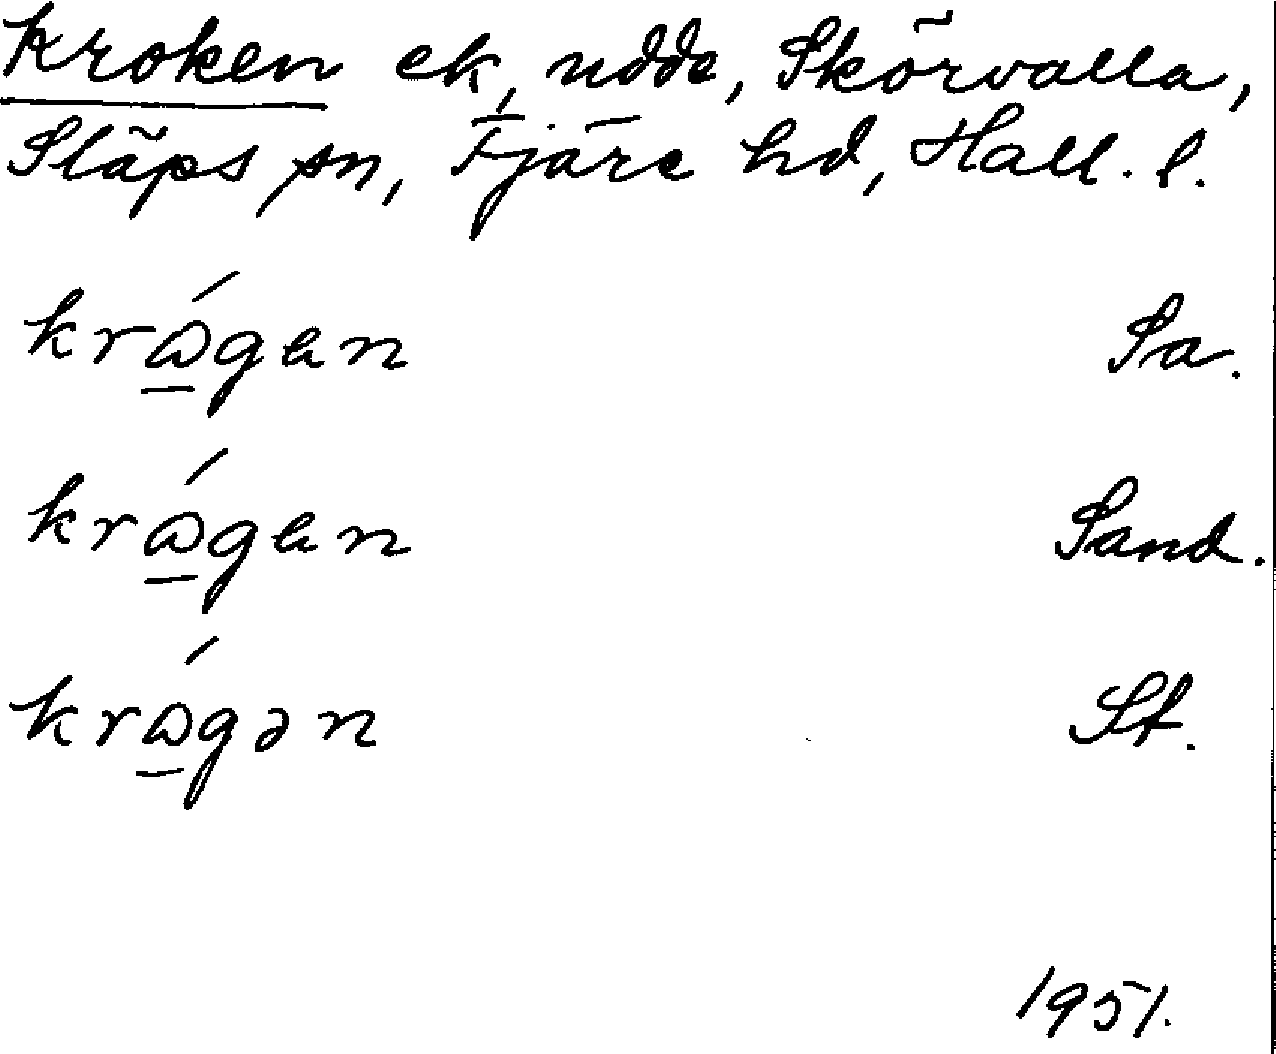 Kroken ek, udde, Skörvalla,
Släps sn, Fjäre hd, Hall. l.
krɷ̲́gɐn Sa.
krɷ̲́gɐn Sand.
krɷ̲́gən St.
1951.